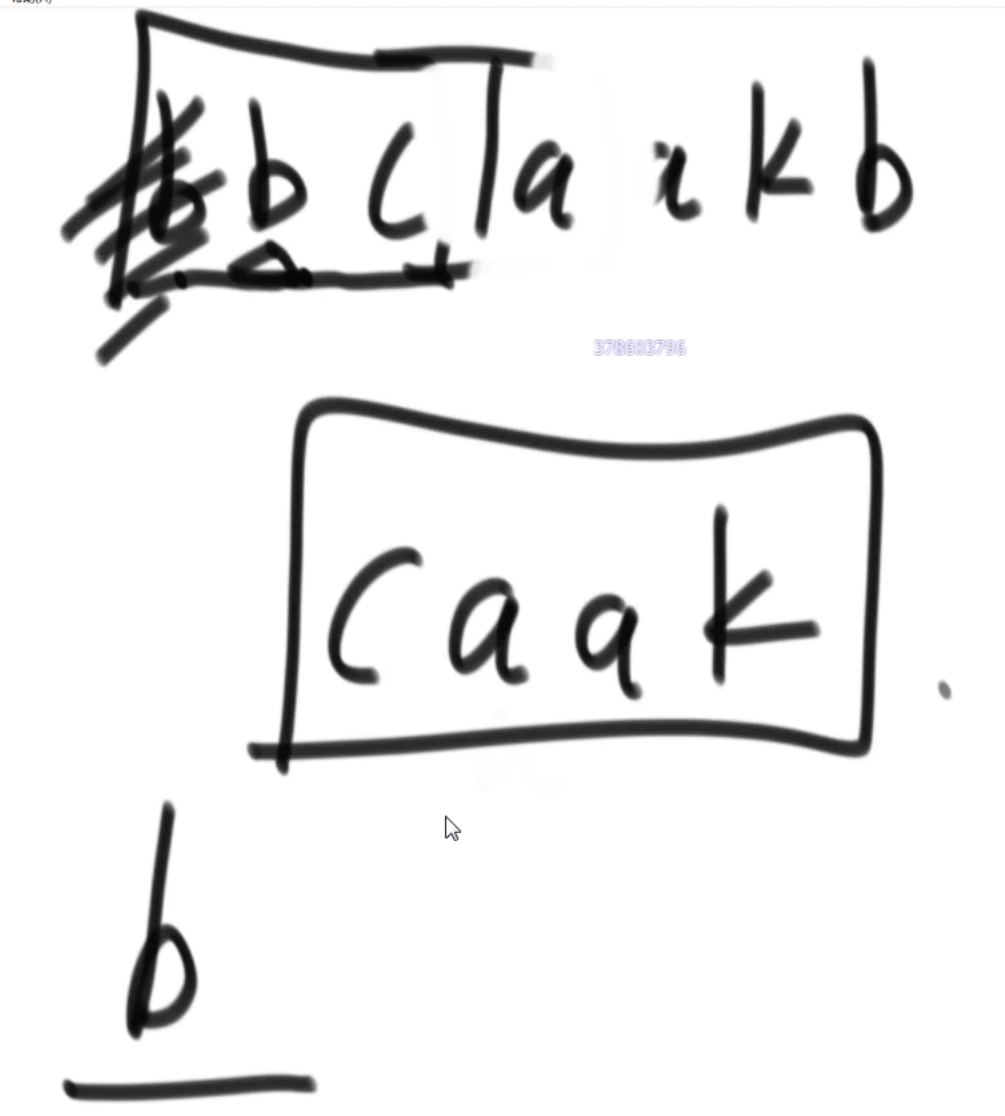 b b c a a k b
378603796
c a a k
b